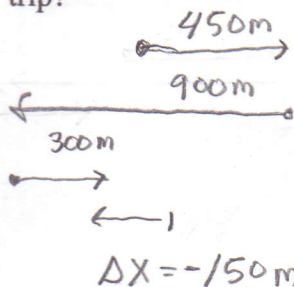 trip?
450m
900m
300m
ΔX = -150m